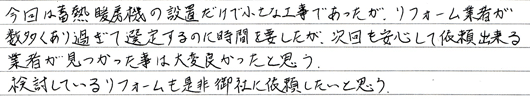 今回は蓄熱暖房機の設置だけで小さな工事であったが、リフォーム業者が
数多くあり過ぎて選定するのに時間を要したが、次回も安心して依頼出来る
業者が見つかった事は大変良かったと思う。
検討しているリフォームも是非御社に依頼したいと思う。